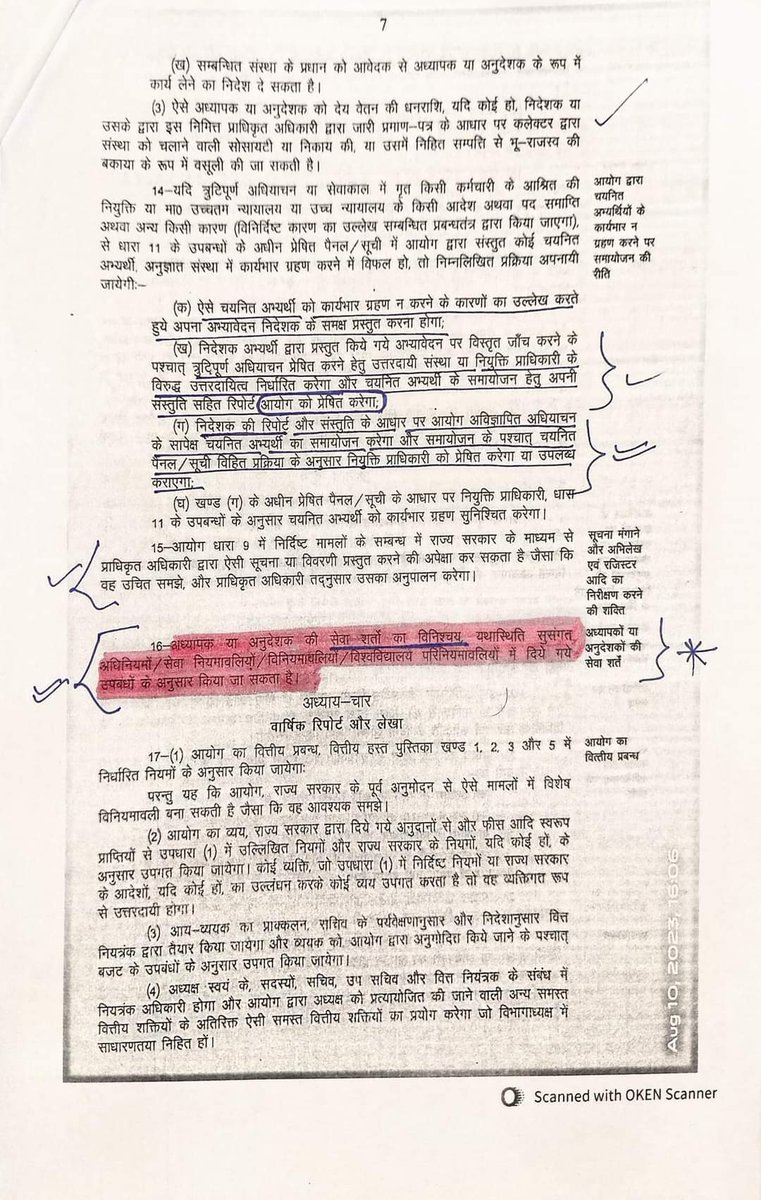 7
(ख) सम्बन्धित संस्था के प्रधान को आवेदक से अध्यापक या अनुदेशक के रूप में
कार्य लेने का निदेश दे सकता है।
(3) ऐसे अध्यापक या अनुदेशक को देय वेतन की धनराशि, यदि कोई हो, निदेशक या
उसके द्वारा इस निमित्त प्राधिकृत अधिकारी द्वारा जारी प्रमाण-पत्र के आधार पर कलेक्टर द्वारा
संस्था को चलाने वाली सोसायटी या निकाय की, या उसमें निहित सम्पत्ति से भू-राजस्व की
बकाया के रूप में वसूली की जा सकती है।
14-यदि त्रुटिपूर्ण अधियाचन या सेवाकाल में मृत किसी कर्मचारी के आश्रित की
नियुक्ति या मा0 उच्चतम न्यायालय या उच्च न्यायालय के किसी आदेश अथवा पद समाप्ति
अथवा अन्य किसी कारण (विनिर्दिष्ट कारण का उल्लेख सम्बन्धित प्रबन्धतंत्र द्वारा किया जाएगा),
से धारा 11 के उपबन्धों के अधीन प्रेषित पैनल/सूची में आयोग द्वारा संस्तुत कोई चयनित
अभ्यर्थी, अनुज्ञात संस्था में कार्यभार ग्रहण करने में विफल हो, तो निम्नलिखित प्रक्रिया अपनायी
जायेगी:-
आयोग द्वारा
चयनित
अभ्यर्थियों के
कार्यभार न
ग्रहण करने पर
समायोजन की
रीति
(क) ऐसे चयनित अभ्यर्थी को कार्यभार ग्रहण न करने के कारणों का उल्लेख करते
हुये अपना अभ्यावेदन निदेशक के समक्ष प्रस्तुत करना होगा;
(ख) निदेशक अभ्यर्थी द्वारा प्रस्तुत किये गये अभ्यावेदन पर विस्तृत जाँच करने के
पश्चात् त्रुटिपूर्ण अधियाचन प्रेषित करने हेतु उत्तरदायी संस्था या नियुक्ति प्राधिकारी के
विरुद्ध उत्तरदायित्व निर्धारित करेगा और चयनित अभ्यर्थी के समायोजन हेतु अपनी
संस्तुति सहित रिपोर्ट आयोग को प्रेषित करेगा;
(ग) निदेशक की रिपोर्ट और संस्तुति के आधार पर आयोग अविज्ञापित अधियाचन
के सापेक्ष चयनित अभ्यर्थी का समायोजन करेगा और समायोजन के पश्चात् चयनित
पैनल/सूची विहित प्रक्रिया के अनुसार नियुक्ति प्राधिकारी को प्रेषित करेगा या उपलब्ध
कराएगा;
(घ) खण्ड (ग) के अधीन प्रेषित पैनल/सूची के आधार पर नियुक्ति प्राधिकारी, धारा
11 के उपबन्धों के अनुसार चयनित अभ्यर्थी को कार्यभार ग्रहण सुनिश्चित करेगा।
15-आयोग धारा 9 में निर्दिष्ट मामलों के सम्बन्ध में राज्य सरकार के माध्यम से
प्राधिकृत अधिकारी द्वारा ऐसी सूचना या विवरणी प्रस्तुत करने की अपेक्षा कर सकता है जैसा कि
वह उचित समझे, और प्राधिकृत अधिकारी तद्नुसार उसका अनुपालन करेगा।
सूचना मंगाने
और अभिलेख
एवं रजिस्टर
आदि का
निरीक्षण करने
की शक्ति
16-अध्यापक या अनुदेशक की सेवा शर्तों का विनिश्चय, यथास्थिति सुसंगत
अधिनियमों/सेवा नियमावलियों/विनियमावलियों/विश्वविद्यालय परिनियमावलियों में दिये गये
उपबंधों के अनुसार किया जा सकता है।
अध्यापकों या
अनुदेशकों की
सेवा शर्तें
अध्याय-चार
वार्षिक रिपोर्ट और लेखा
17-(1) आयोग का वित्तीय प्रबन्ध, वित्तीय हस्त पुस्तिका खण्ड 1, 2, 3 और 5 में
निर्धारित नियमों के अनुसार किया जायेगा:
आयोग का
वित्तीय प्रबन्ध
परन्तु यह कि आयोग, राज्य सरकार के पूर्व अनुमोदन से ऐसे मामलों में विशेष
विनियमावली बना सकती है जैसा कि वह आवश्यक समझे।
(2) आयोग का व्यय, राज्य सरकार द्वारा दिये गये अनुदानों से और फीस आदि स्वरूप
प्राप्तियों से उपधारा (1) में उल्लिखित नियमों और राज्य सरकार के नियमों, यदि कोई हों, के
अनुसार उपगत किया जायेगा। कोई व्यक्ति, जो उपधारा (1) में निर्दिष्ट नियमों या राज्य सरकार
के आदेशों, यदि कोई हों, का उल्लंघन करके कोई व्यय उपगत करता है तो वह व्यक्तिगत रूप
से उत्तरदायी होगा।
(3) आय-व्ययक का प्राक्कलन, सचिव के पर्यवेक्षणानुसार और निदेशानुसार वित्त
नियंत्रक द्वारा तैयार किया जायेगा और व्ययक को आयोग द्वारा अनुमोदित किये जाने के पश्चात्
बजट के उपबंधों के अनुसार उपगत किया जायेगा।
(4) अध्यक्ष स्वयं के, सदस्यों, सचिव, उप सचिव और वित्त नियंत्रक के संबंध में
नियंत्रक अधिकारी होगा और आयोग द्वारा अध्यक्ष को प्रत्यायोजित की जाने वाली अन्य समस्त
वित्तीय शक्तियों के अतिरिक्त ऐसी समस्त वित्तीय शक्तियों का प्रयोग करेगा जो विभागाध्यक्ष में
साधारणतया निहित हों।
Aug 10, 2023, 15:06
Scanned with OKEN Scanner